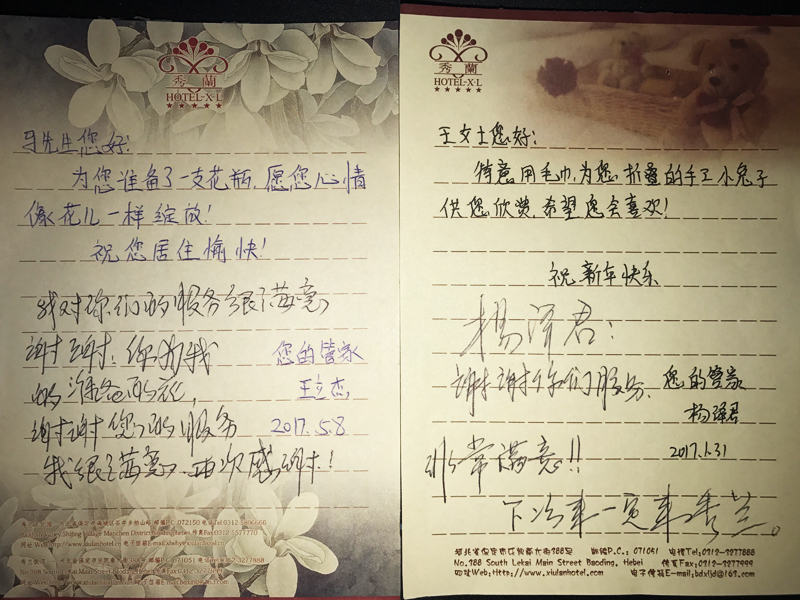 秀蘭
HOTEL·X·L
马先生您好!
为您准备了一支花瓶,愿您心情
像花儿一样绽放!
祝您居住愉快!
我对你们的服务很满意,
谢谢,你为我
的准备的花,
谢谢您的服务
我很满意,再次感谢!
您的管家
王立杰
2017.5.8
秀蘭
HOTEL·X·L
王女士您好:
特意用毛巾,为您折叠的手工小兔子
供您欣赏,希望您会喜欢!
祝新年快乐
杨泽君:
谢谢你们服务,
非常满意!!
下次来一定来秀兰。
您的管家
杨泽君
2017.1.31
河北省保定市区朝阳南大街388号 邮编P.C.:071051 电话Tel:0312-3277888
No.388 South Lekai Main Street Baoding, Hebei 传真Fax:0312-3277999
网址Web:Http://www.xiulanhotel.com 电子信箱E-mail:bdxljd@163.com